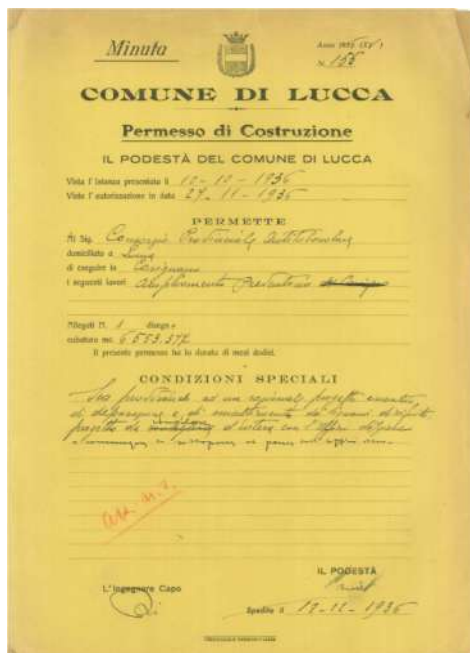 Minuta
Anno 1936 (XV)
N. 155
COMUNE DI LUCCA
Permesso di Costruzione
IL PODESTÀ DEL COMUNE DI LUCCA
Vista l'istanza presentata il 10-10-1936
Vista l'autorizzazione in data 27-11-1936
PERMETTE
Al Sig. Consorzio Provinciale Antitubercolare
domiciliato a Lucca
di eseguire in Carignano
i seguenti lavori Ampliamento Preventorio
Allegati N. 1 disegni
cubatura mc. 6553.372
Il presente permesso ha la durata di mesi dodici.
CONDIZIONI SPECIALI
Sia ad un razionale progetto
di e di smaltimento dei liquami di rifiuto
progetto da d'intesa con l'Ufficio d'Igiene
IL PODESTÀ
L'Ingegnere Capo
Spedito il 12-12-1936